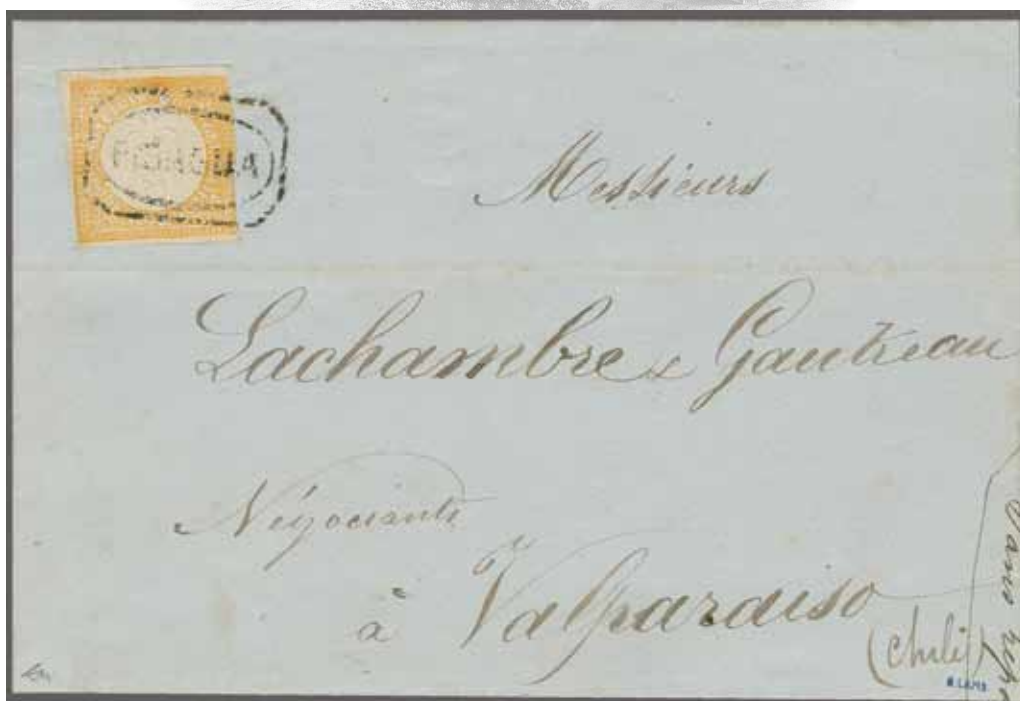 PISAGUA
Messieurs
Lachambre & Gautreau
Négociants
à Valparaiso
(Chili)